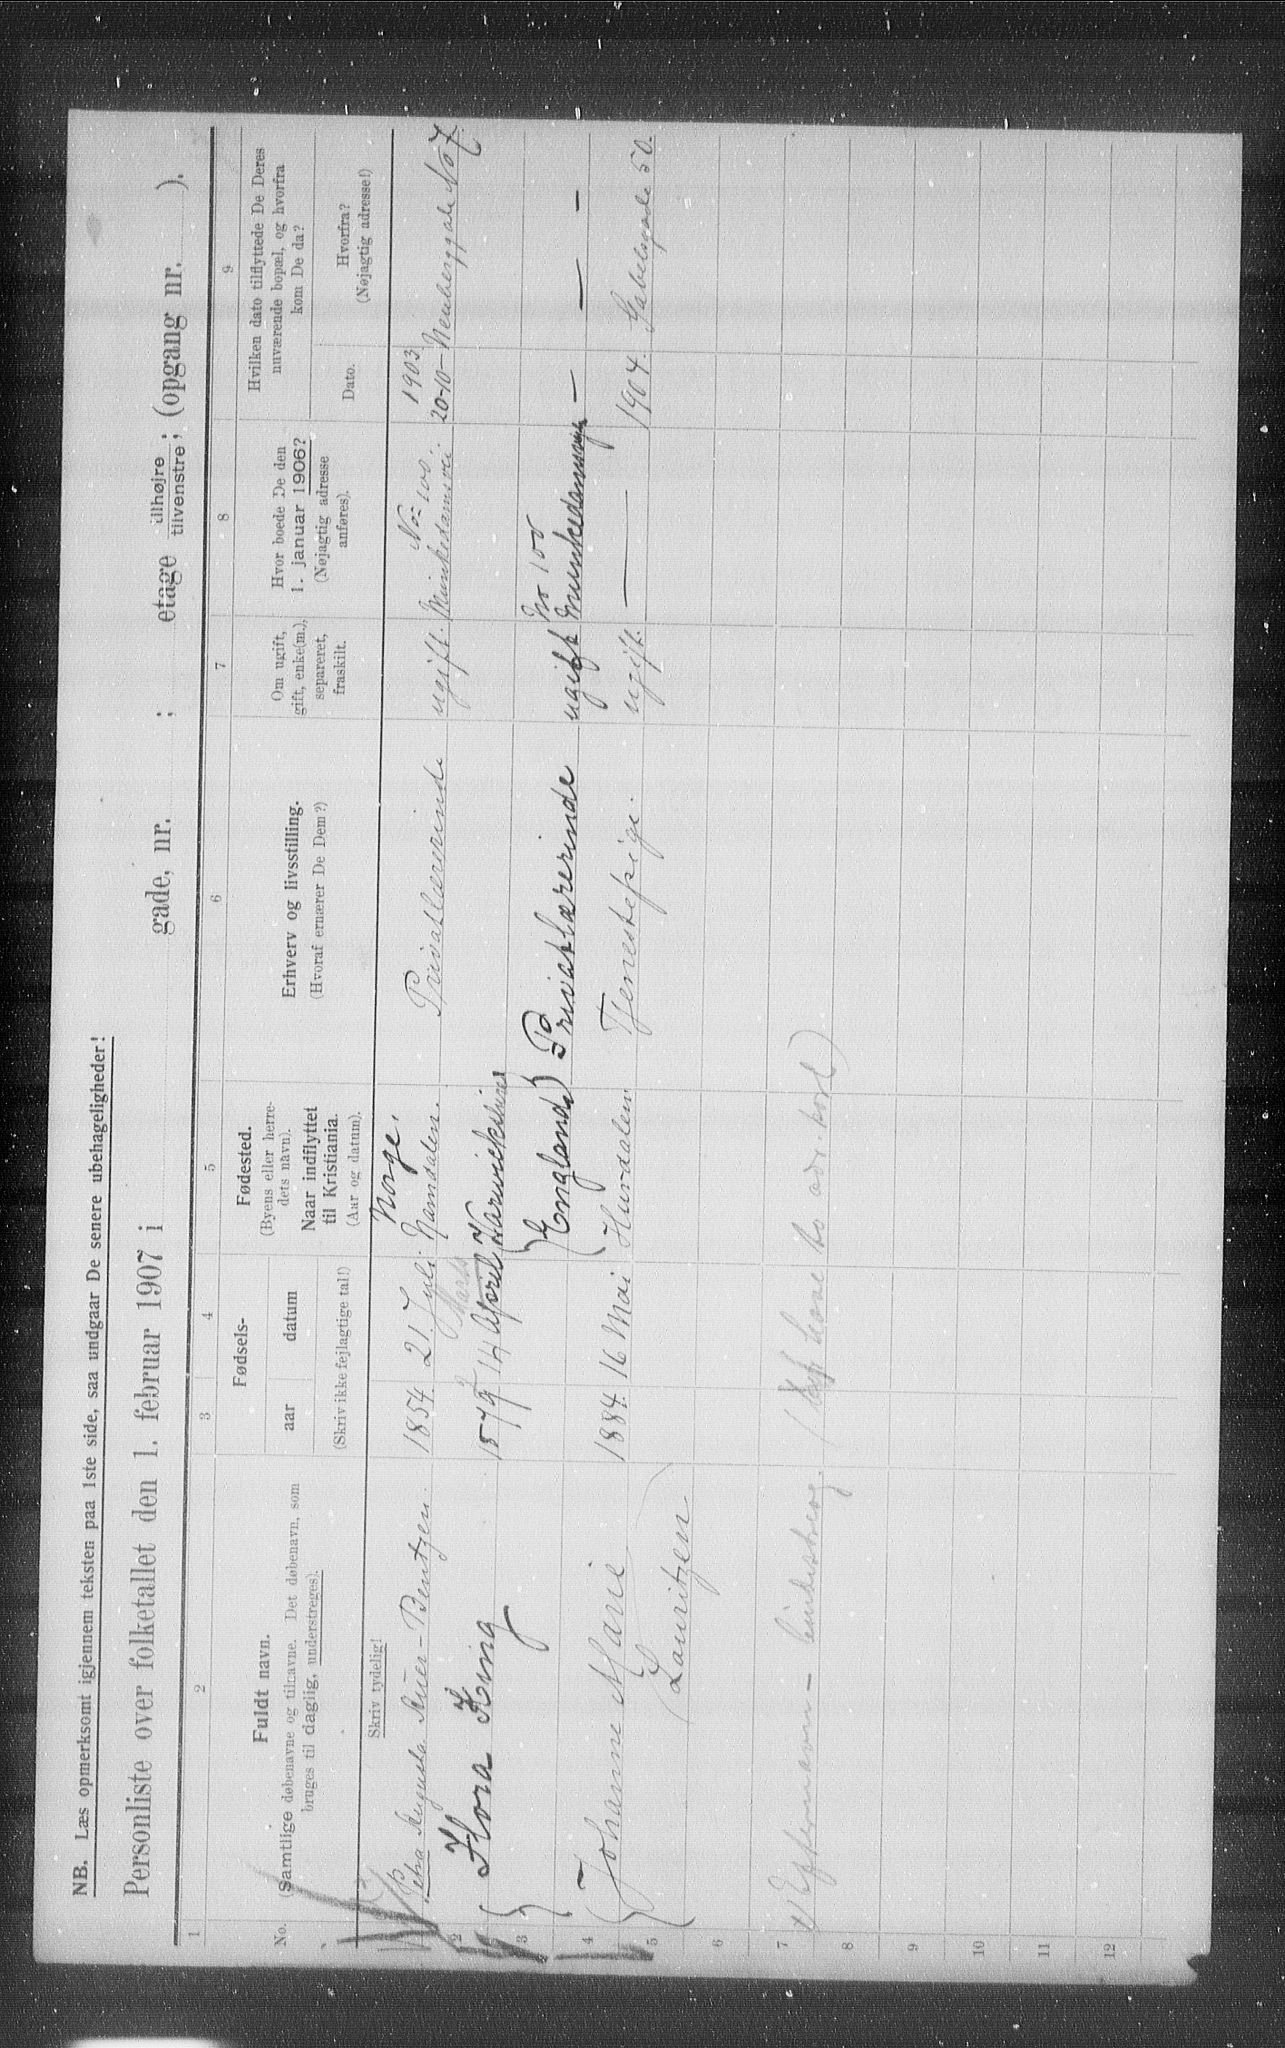 NB. Læs opmerksomt igjennem teksten paa 1ste side, saa undgaar De senere ubehageligheder!
Personliste over folketallet den 1. februar 1907 i gade, nr. ; etage tilhøjre tilvenstre; (opgang nr. ).
1 2 3 4 5 6 7 8 9
No.
Fuldt navn.
(Samtlige døbenavne og tilnavne. Det døbenavn, som
bruges til daglig, understreges).
Skriv tydelig!
Fødsels-
aar datum
(Skriv ikke fejlagtige tal!)
Fødested.
(Byens eller herre-
dets navn).
Naar indflyttet
til Kristiania.
(Aar og datum).
Erhverv og livsstilling.
(Hvoraf ernærer De Dem?)
Om ugift,
gift, enke(m.),
separeret,
fraskilt.
Hvor boede De den
1. januar 1906?
(Nøjagtig adresse
anføres).
Hvilken dato tilflyttede De Deres
nuværende bopæl, og hvorfra
kom De da?
Dato.
Hvorfra?
(Nøjagtig adresse!)
Norge. No 100. 1903
Petra Augusta -Bentzen. 1854. 21 Juli. Namdalen. Privatlærerinde ugift. Munkedamsvei 20-10- Neuberggade No 7
2 Marts
Flora King 1879 14 April Warwickshire
3 (England) Privatlærerinde ugift No 100 Munkedamsvej - — -
4 Johanne Marie 1884. 16 Mai Hurdalen Tjenestepige. ugift. — 1904. Gabelsgade 50.
5 (Lauritzen)
6
7 Efternavn -
8
9
10
11
12